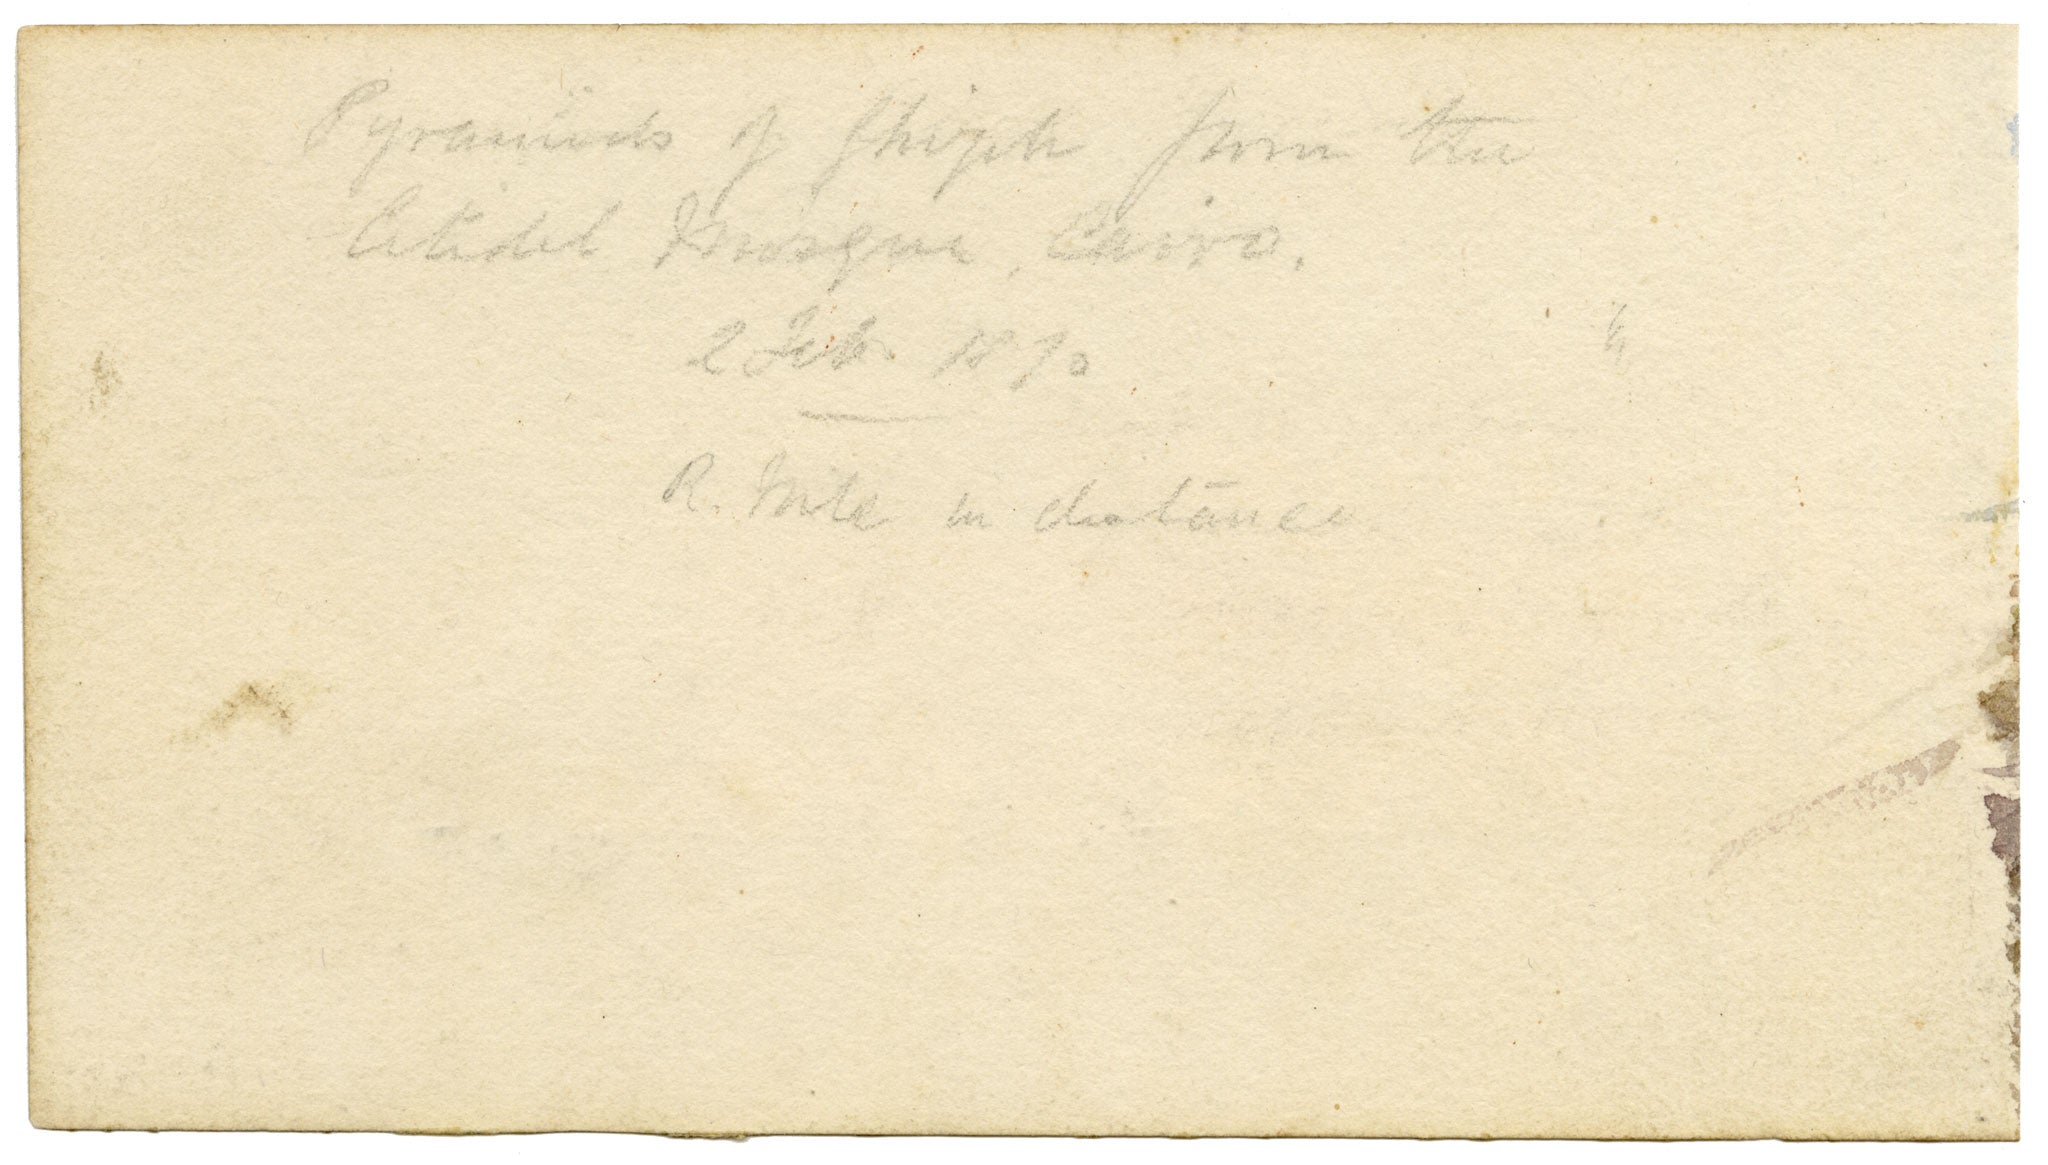 Pyramids of Ghizeh from the
Citidel Mosque, Cairo.
2 Feb 1870
R. Nile in distance